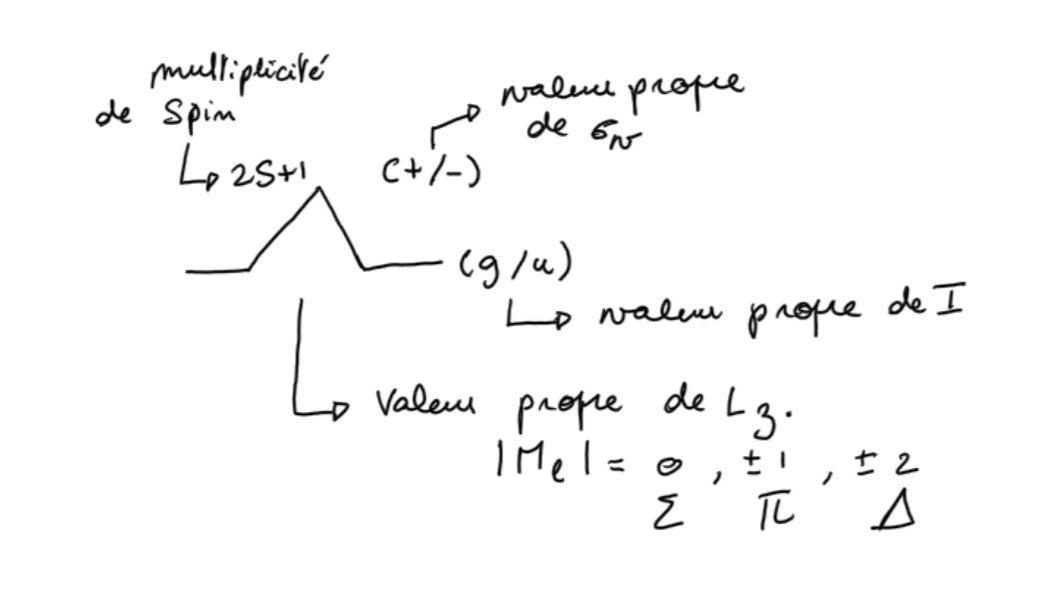 multiplicité
de Spin
valeur propre
de σv
2S+1
(+/-)
(g/u)
valeur propre de I
Valeur propre de Lz.
|Mℓ| = 0, ±1, ±2
Σ Π Δ